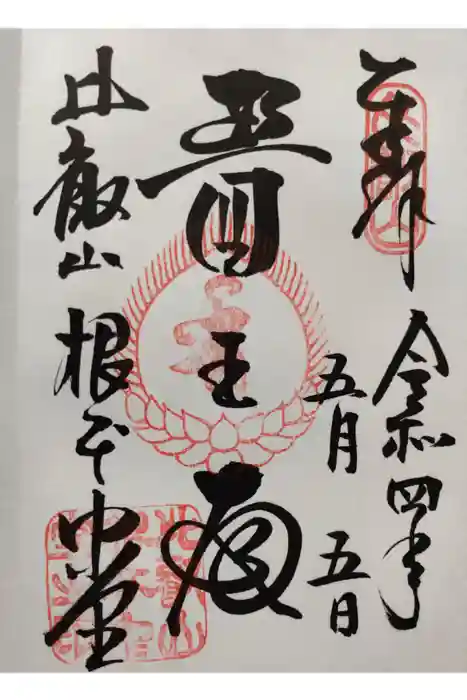 奉拝
令和四年
五月五日
醫王殿
比叡山
根本中堂